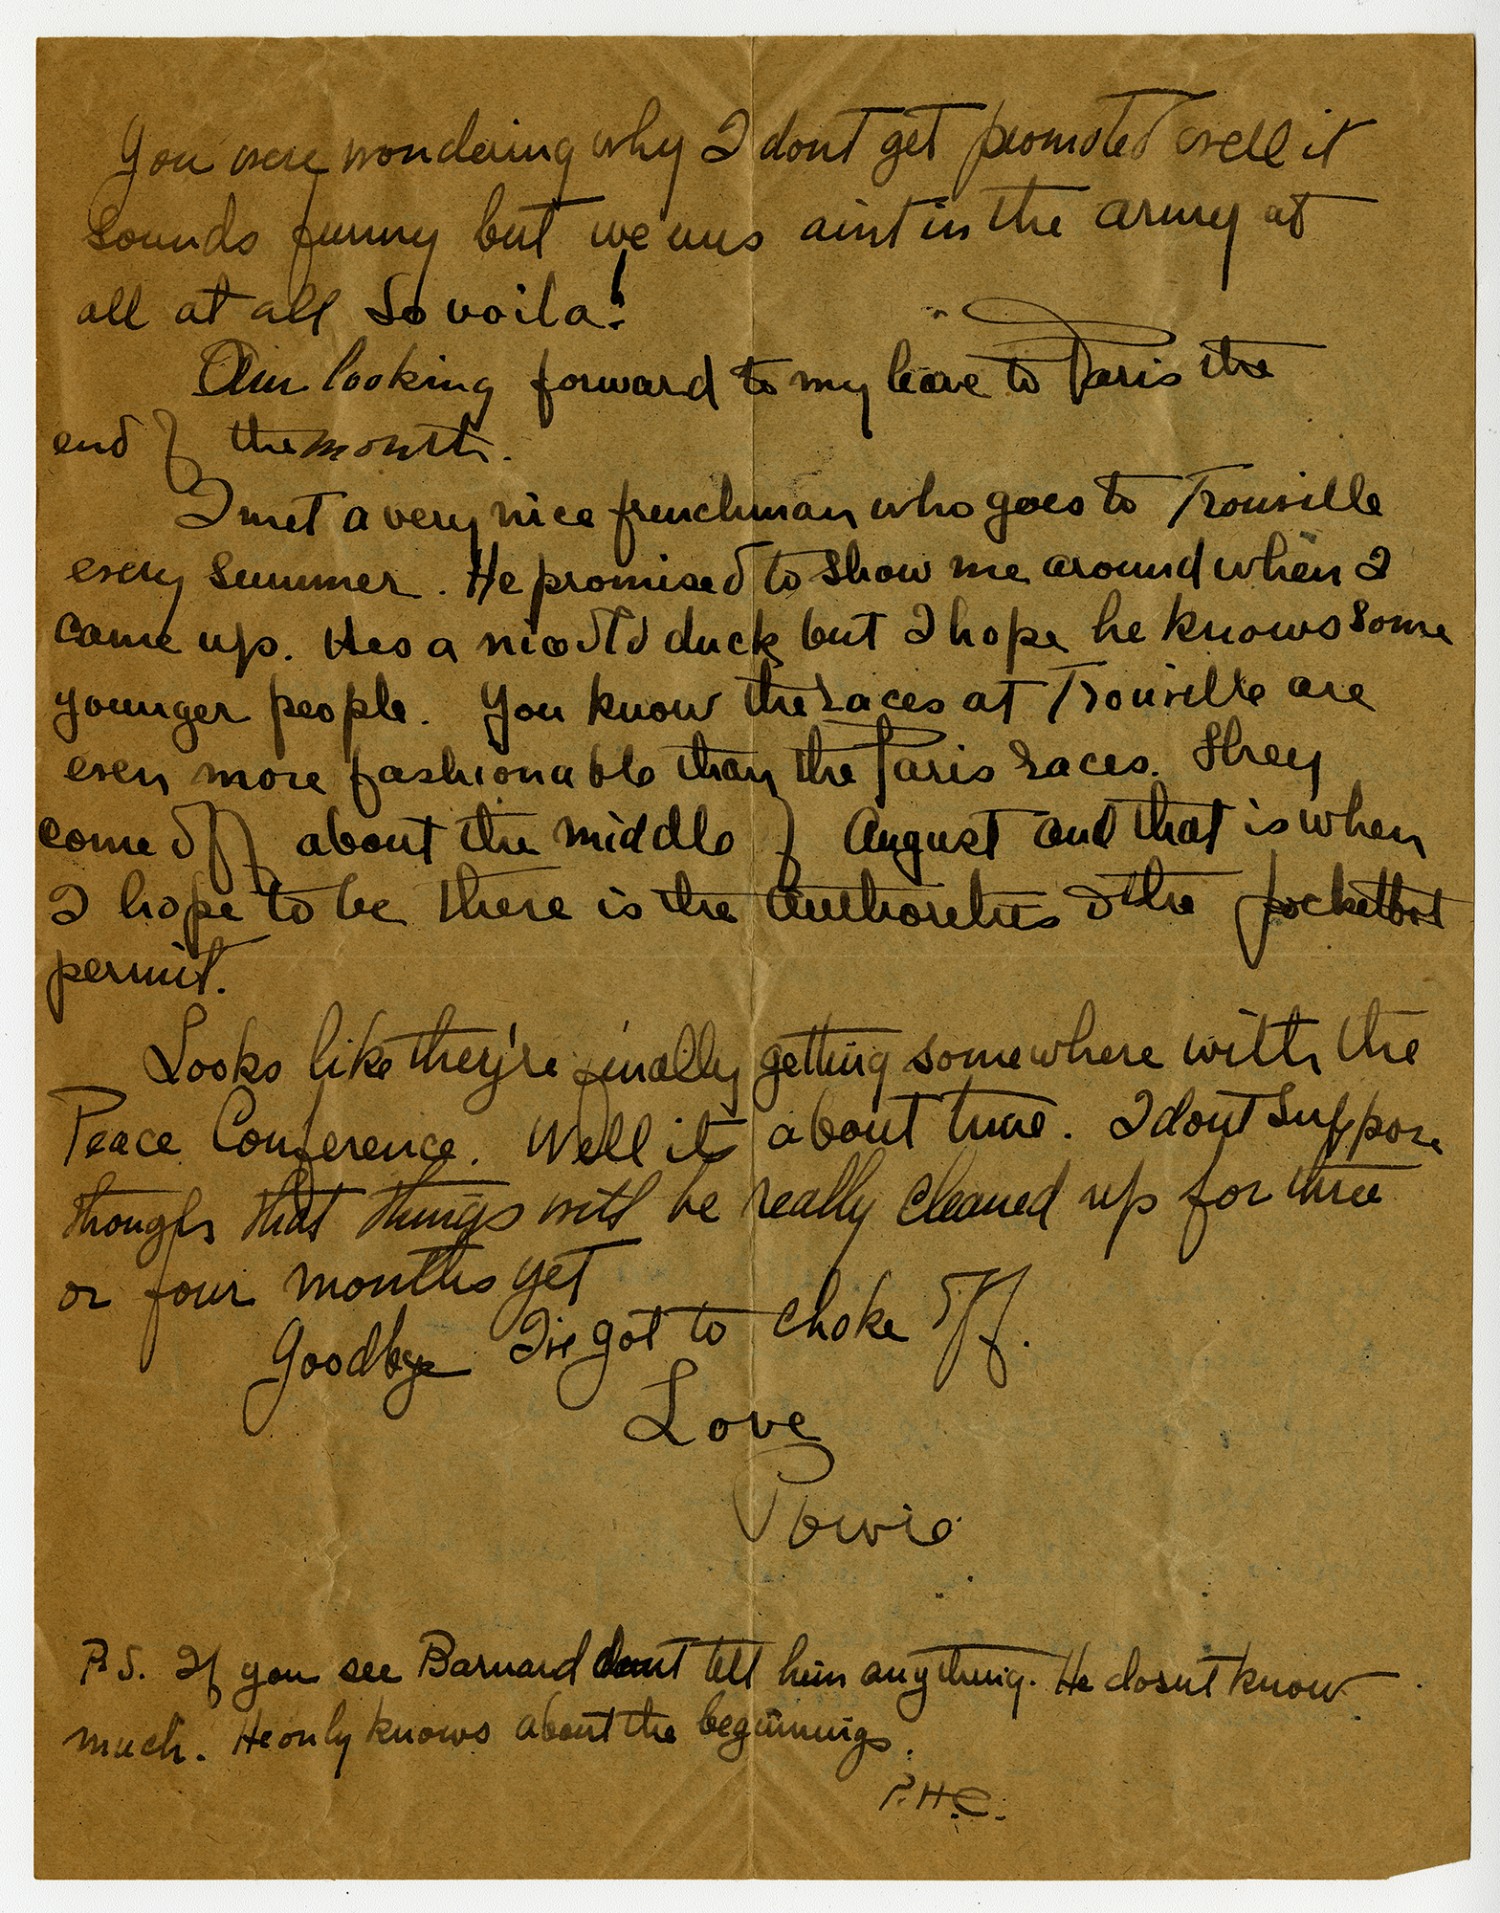 You were wondering why I dont get promoted well it
sounds funny but we uns aint in the army at
all at all So voila!
Am looking forward to my leave to Paris the
end of the month.
I met a very nice frenchman who goes to Trouville
every summer. He promised to show me around when I
came up. Hes a nice old duck but I hope he knows some
younger people. You know the races at Trouville are
even more fashionable than the Paris races. They
come off about the middle of August and that is when
I hope to be there is the authorities & the pocketbook
permit.
Looks like they're finally getting somewhere with the
Peace Conference. Well its about time. I dont suppose
though that things will be really cleaned up for three
or four months yet
Goodbye I've got to choke off.
Love
Powie
P.S. If you see Barnard dont tell him anything. He dosnt know
much. He only knows about the beginnings.
P.H.C.